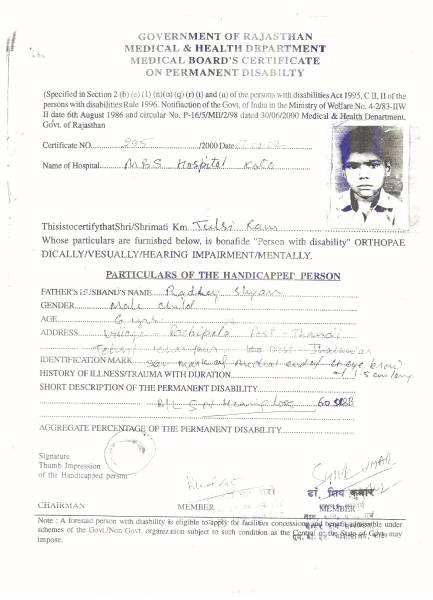 GOVERNMENT OF RAJASTHAN
MEDICAL & HEALTH DEPARTMENT
MEDICAL BOARD'S CERTIFICATE
ON PERMANENT DISABILTY
(Specified in Section 2 (b) (e) (1) (n)(o) (q) (r) (t) and (u) of the persons with disabilities Act 1995, C II, II of the
persons with disabilities Rule 1996. Notifinaction of the Govt. of India in the Ministry of Welfare No. 4-2/83-IIW
II date 6th August 1986 and circular No. P-16/5/MII/2/98 dated 30/06/2000 Medical & Health Department,
Govt. of Rajasthan
Certificate NO. 295 /2000 Date
Name of Hospital M.B.S Hospital Kota
ThisistocertifythatShri/Shrimati Km Tulsi Ram
Whose particulars are furnished below, is bonafide "Person with disability" ORTHOPAE
DICALLY/VESUALLY/HEARING IMPAIRMENT/MENTALLY.
PARTICULARS OF THE HANDICAPPED PERSON
FATHER'S/HUSBAND'S NAME Shyam
GENDER Male child
AGE 6 yrs
ADDRESS Village - Post -
IDENTIFICATION MARK medial end of eye brow
HISTORY OF ILLNESS/TRAUMA WITH DURATION of 1.5 cm long
SHORT DESCRIPTION OF THE PERMANENT DISABILITY
B/L S N Hearing loss 60
AGGREGATE PERCENTAGE OF THE PERMANENT DISABILITY
Signature
Thumb Impression
of the Handicapped person
डॉ. शिव कुमार
CHAIRMAN MEMBER MEMBER
Note : A foresaid person with disability is eligible to apply for facilities concessions and benefit admissible under
schemes of the Govt./Non Govt. organization subject to such condition as the Central or the State Govt. may
impose.